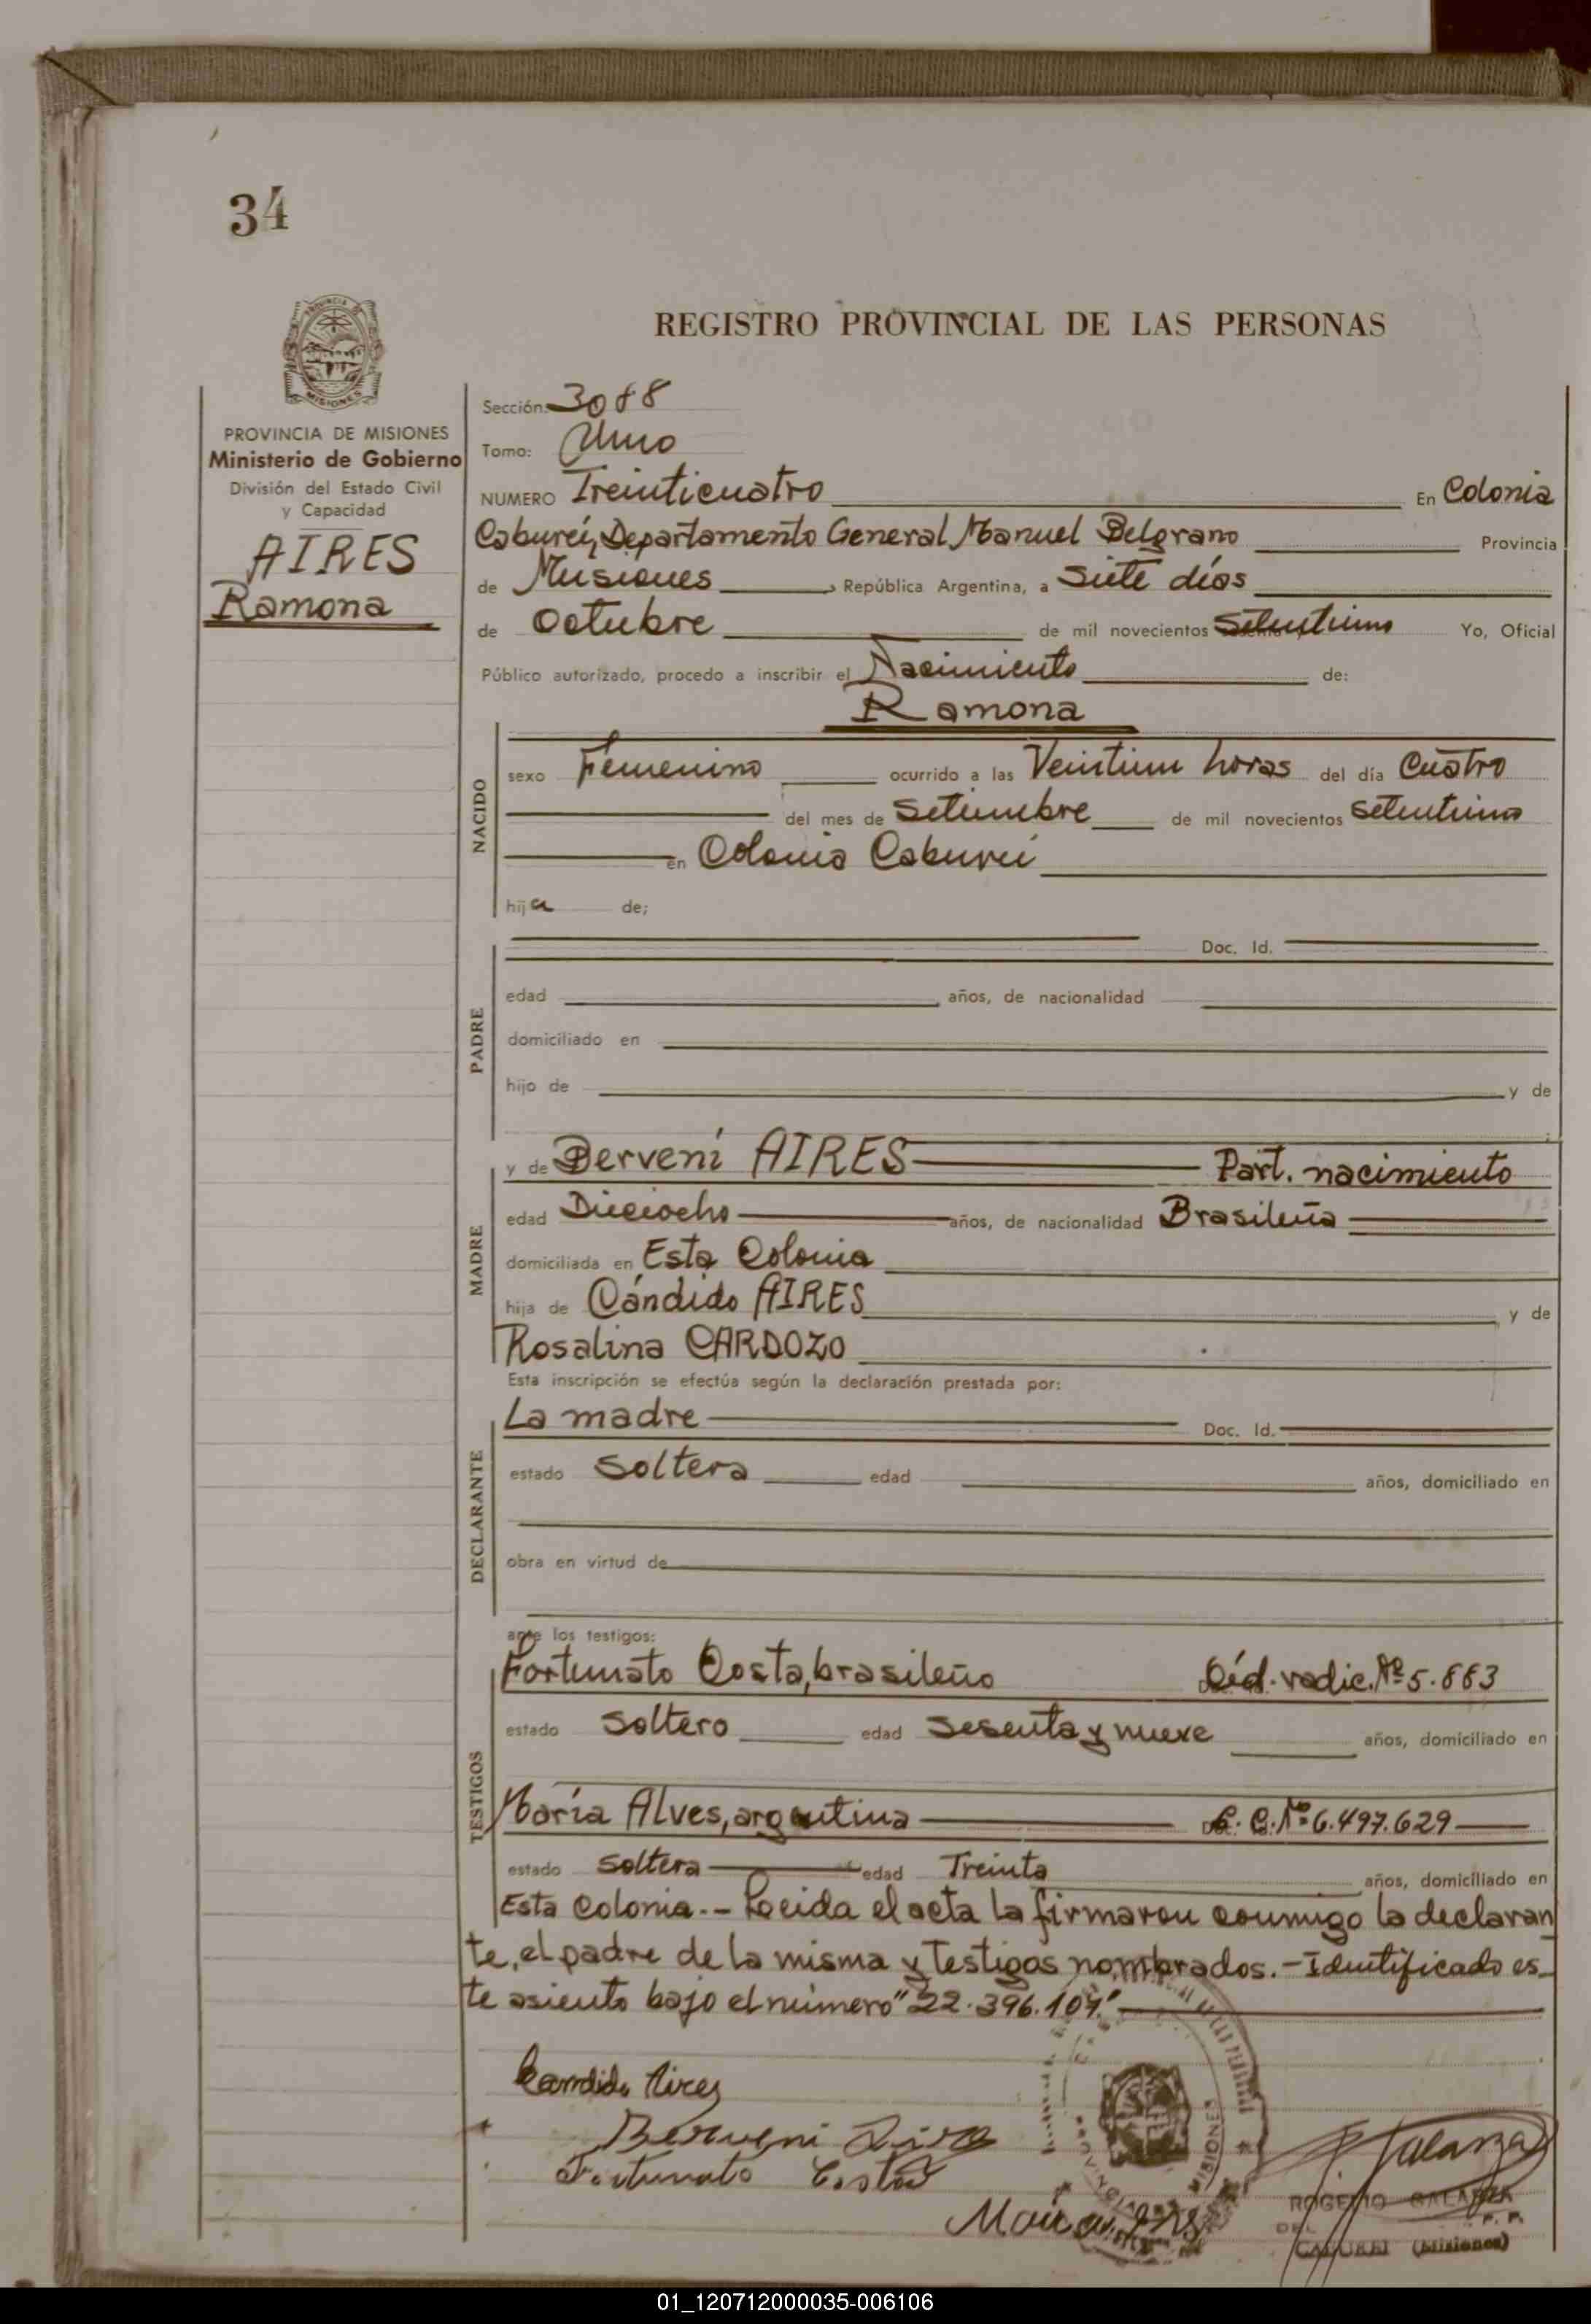 34
REGISTRO PROVINCIAL DE LAS PERSONAS
PROVINCIA DE MISIONES
Ministerio de Gobierno
División del Estado Civil
y Capacidad
AIRES
Ramona
Sección: 3088
Tomo: Uno
NUMERO Treinticuatro En Colonia
Cabureí, Departamento General Manuel Belgrano Provincia
de Misiones, República Argentina, a siete días
de Octubre de mil novecientos setentiuno Yo, Oficial
Público autorizado, procedo a inscribir el Nacimiento de:
Ramona
NACIDO
sexo Femenino ocurrido a las Veintiun horas del día Cuatro
del mes de Setiembre de mil novecientos setentiuno
en Colonia Caburei
hija de;
PADRE
Doc. Id.
edad , años, de nacionalidad
domiciliado en
hijo de y de
MADRE
y de Derveni AIRES Part. nacimiento
edad Dieciocho años, de nacionalidad Brasileña
domiciliada en Esta Colonia
hija de Cándido AIRES, y de
Rosalina CARDOZO
Esta inscripción se efectúa según la declaración prestada por:
DECLARANTE
La madre Doc. Id.
estado Soltera edad años, domiciliado en
obra en virtud de
ante los testigos:
TESTIGOS
Fortunato Costa, brasileño Céd. radic. Nº 5.883
estado Soltero edad Sesenta y nueve años, domiciliado en
María Alves, argentina C. Nº 6.497.629
estado Soltera edad Treinta años, domiciliado en
Esta Colonia.- Leída el acta la firmaron conmigo la declaran
te, el padre de la misma y testigos nombrados.- Identificado es-
te asiento bajo el número "22.396.107."
Candido Aires
Fortunato Costa
MISIONES
ROGELIO GALARZA
CABUREI (Misiones)
01_120712000035-006106